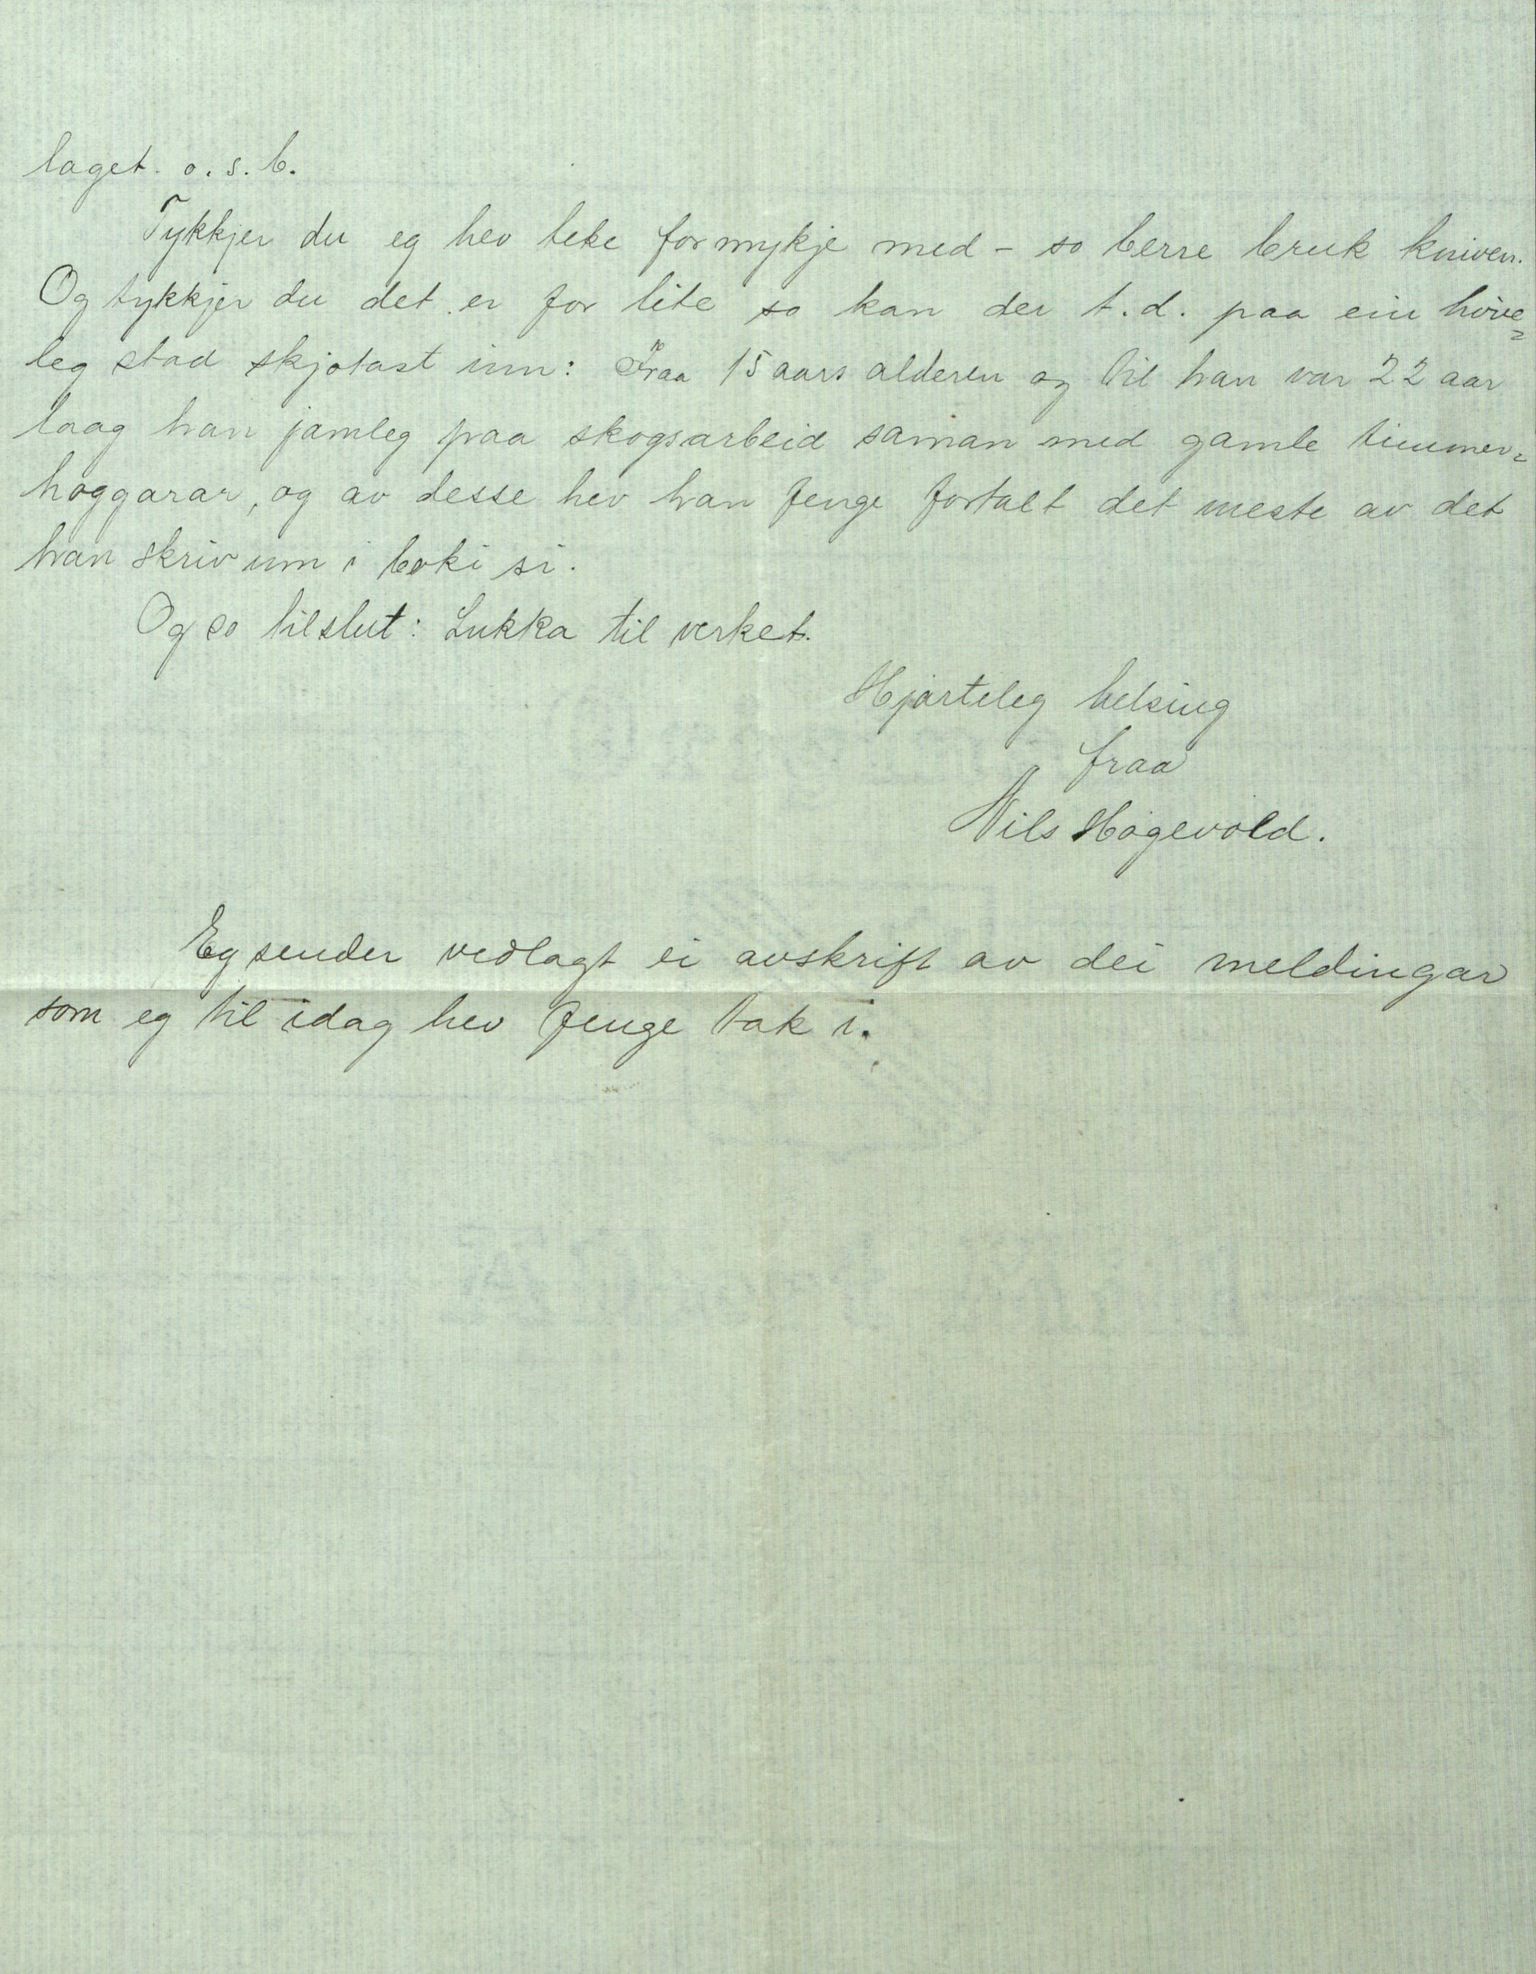 laget. o.s.b.
Tykkjer du eg hev teke for mykje med – so berre bruk kniven.
Og tykkjer du det er for lite so kan der t.d. paa ein høve=
leg stad skjotast inn: Fraa 15 aars alderen og til han var 22 aar
laag han jamleg paa skogsarbeid saman med gamle timmer=
hoggarar, og av desse hev han fenge fortalt det meste av det
han skriv um i boki si.
Og so tilslut: Lukka til verket.
Hjarteleg helsing
fraa
Nils Høgevold.
Eg sender vedlagt ei avskrift av dei meldingar
som eg til idag hev fenge tak i.